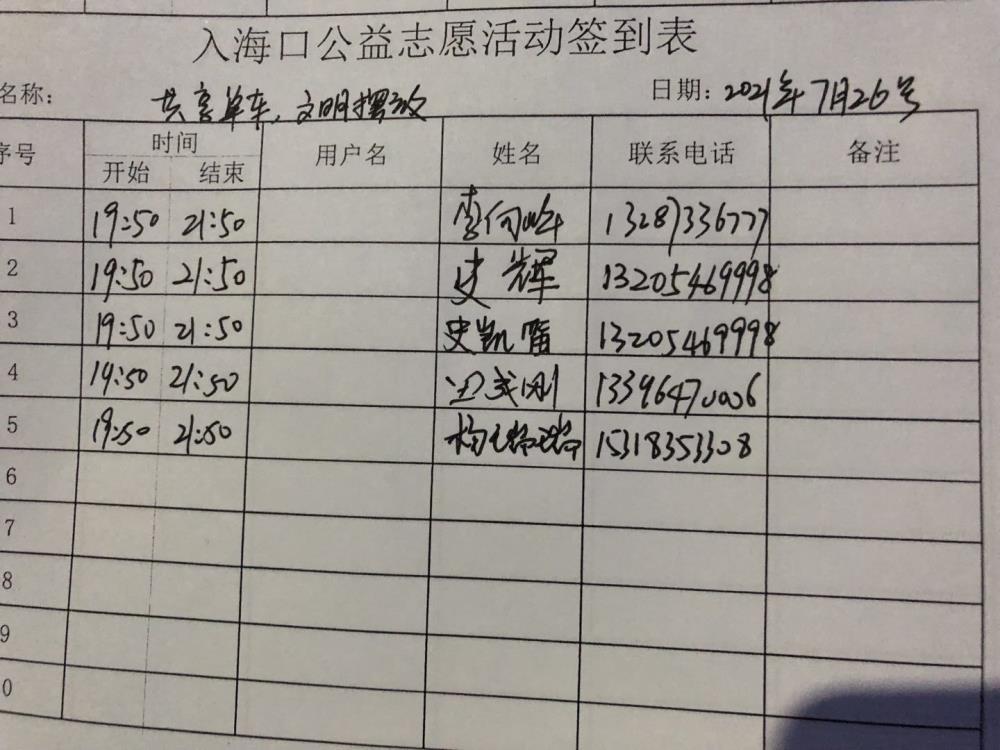 入海口公益志愿活动签到表
名称： 共享单车，文明摆放 日期：2021年7月26号
序号 时间 用户名 姓名 联系电话 备注
开始 结束
1 19:50 21:50 李向峰 13287336777
2 19:50 21:50 史辉 13205469998
3 19:50 21:50 史凯 13205469998
4 19:50 21:50 13396470006
5 19:50 21:50 杨 15318353308
6
7
8
9
0